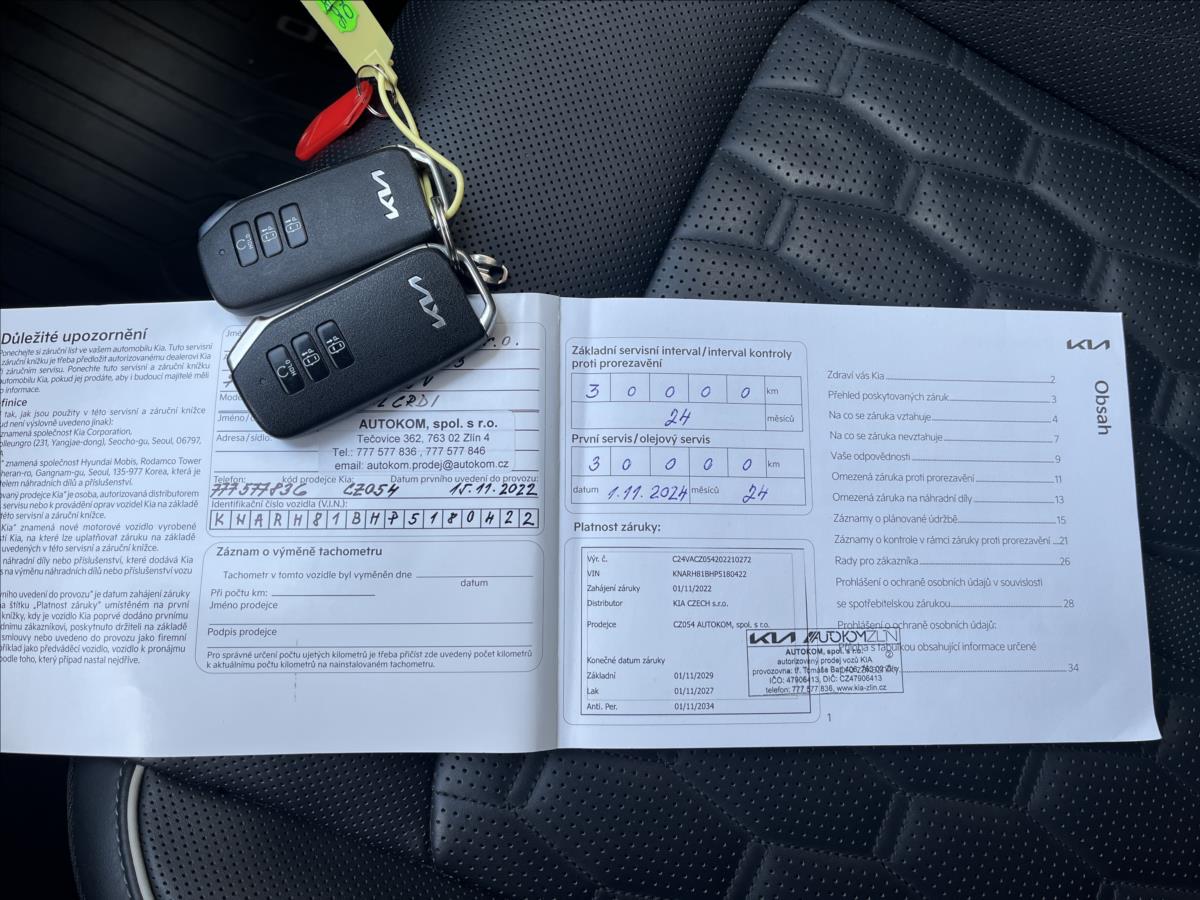 KIA
HOLD
KIA
HOLD
Důležité upozornění
Ponechejte si záruční list ve vašem automobilu Kia. Tuto servisní
záruční knížku je třeba předložit autorizovanému dealerovi Kia
záručním servisu. Ponechte tuto servisní a záruční knížku
automobilu Kia, pokud jej prodáte, aby i budoucí majitelé měli
informace.
finice
tak, jak jsou použity v této servisní a záruční knížce
ud není výslovně uvedeno jinak):
znamená společnost Kia Corporation,
olleungro (231, Yangjae-dong), Seocho-gu, Seoul, 06797,
A
" znamená společnost Hyundai Mobis, Rodamco Tower
heran-ro, Gangnam-gu, Seoul, 135-977 Korea, která je
telem náhradních dílů a příslušenství.
ovaný prodejce Kia" je osoba, autorizovaná distributorem
servisu nebo k provádění oprav vozidel Kia na základě
této servisní a záruční knížce.
Kia" znamená nové motorové vozidlo vyrobené
tí Kia, na které lze uplatňovat záruku na základě
uvedených v této servisní a záruční knížce.
náhradní díly nebo příslušenství, které dodává Kia
s na výměnu náhradních dílů nebo příslušenství vozu
ního uvedení do provozu" je datum zahájení záruky
a štítku „Platnost záruky" umístěném na první
knížky, kdy je vozidlo Kia poprvé dodáno prvnímu
dnímu zákazníkovi, poskytnuto držiteli na základě
smlouvy nebo uvedeno do provozu jako firemní
příklad jako předváděcí vozidlo, vozidlo k pronájmu
podle toho, který případ nastal nejdříve.
Jmé
r.o.
Mode
CRDI
Jméno/
Adresa/sídlo:
AUTOKOM, spol. s r.o.
Tečovice 362, 763 02 Zlín 4
Tel.: 777 577 836 , 777 577 846
email: autokom.prodej@autokom.cz
Telefon: kód prodejce Kia: Datum prvního uvedení do provozu:
777577836 CZ054 15.11.2022
Identifikační číslo vozidla (V.I.N.):
KNARH81BHP5180422
Záznam o výměně tachometru
Tachometr v tomto vozidle byl vyměněn dne
datum
Při počtu km:
Jméno prodejce
Podpis prodejce
Pro správné určení počtu ujetých kilometrů je třeba přičíst zde uvedený počet kilometrů
k aktuálnímu počtu kilometrů na nainstalovaném tachometru.
Základní servisní interval/interval kontroly
proti prorezavění
3 0 0 0 0 km
24 měsíců
První servis/olejový servis
3 0 0 0 0 km
datum 1.11.2024 měsíců 24
Platnost záruky:
Výr. č. C24VACZ054202210272
VIN KNARH81BHP5180422
Zahájení záruky 01/11/2022
Distributor KIA CZECH s.r.o.
Prodejce CZ054 AUTOKOM, spol. s r.o.
Konečné datum záruky
Základní 01/11/2029
Lak 01/11/2027
Anti. Per. 01/11/2034
KIA AUTOKOM ZLÍN
AUTOKOM, spol. s r.o.
autorizovaný prodej vozů KIA
provozovna: tř. Tomáše Bati
IČO: 47906413, DIČ: CZ47906413
telefon: 777 577 836, www.kia-zlin.cz
KIA
Obsah
Zdraví vás Kia 2
Přehled poskytovaných záruk 3
Na co se záruka vztahuje 4
Na co se záruka nevztahuje 7
Vaše odpovědnosti 9
Omezená záruka proti prorezavění 11
Omezená záruka na náhradní díly 13
Záznamy o plánované údržbě 15
Záznamy o kontrole v rámci záruky proti prorezavění 21
Rady pro zákazníka 26
Prohlášení o ochraně osobních údajů v souvislosti
se spotřebitelskou zárukou 28
Prohlášení o ochraně osobních údajů:
Příloha s tabulkou obsahující informace určené
34
1